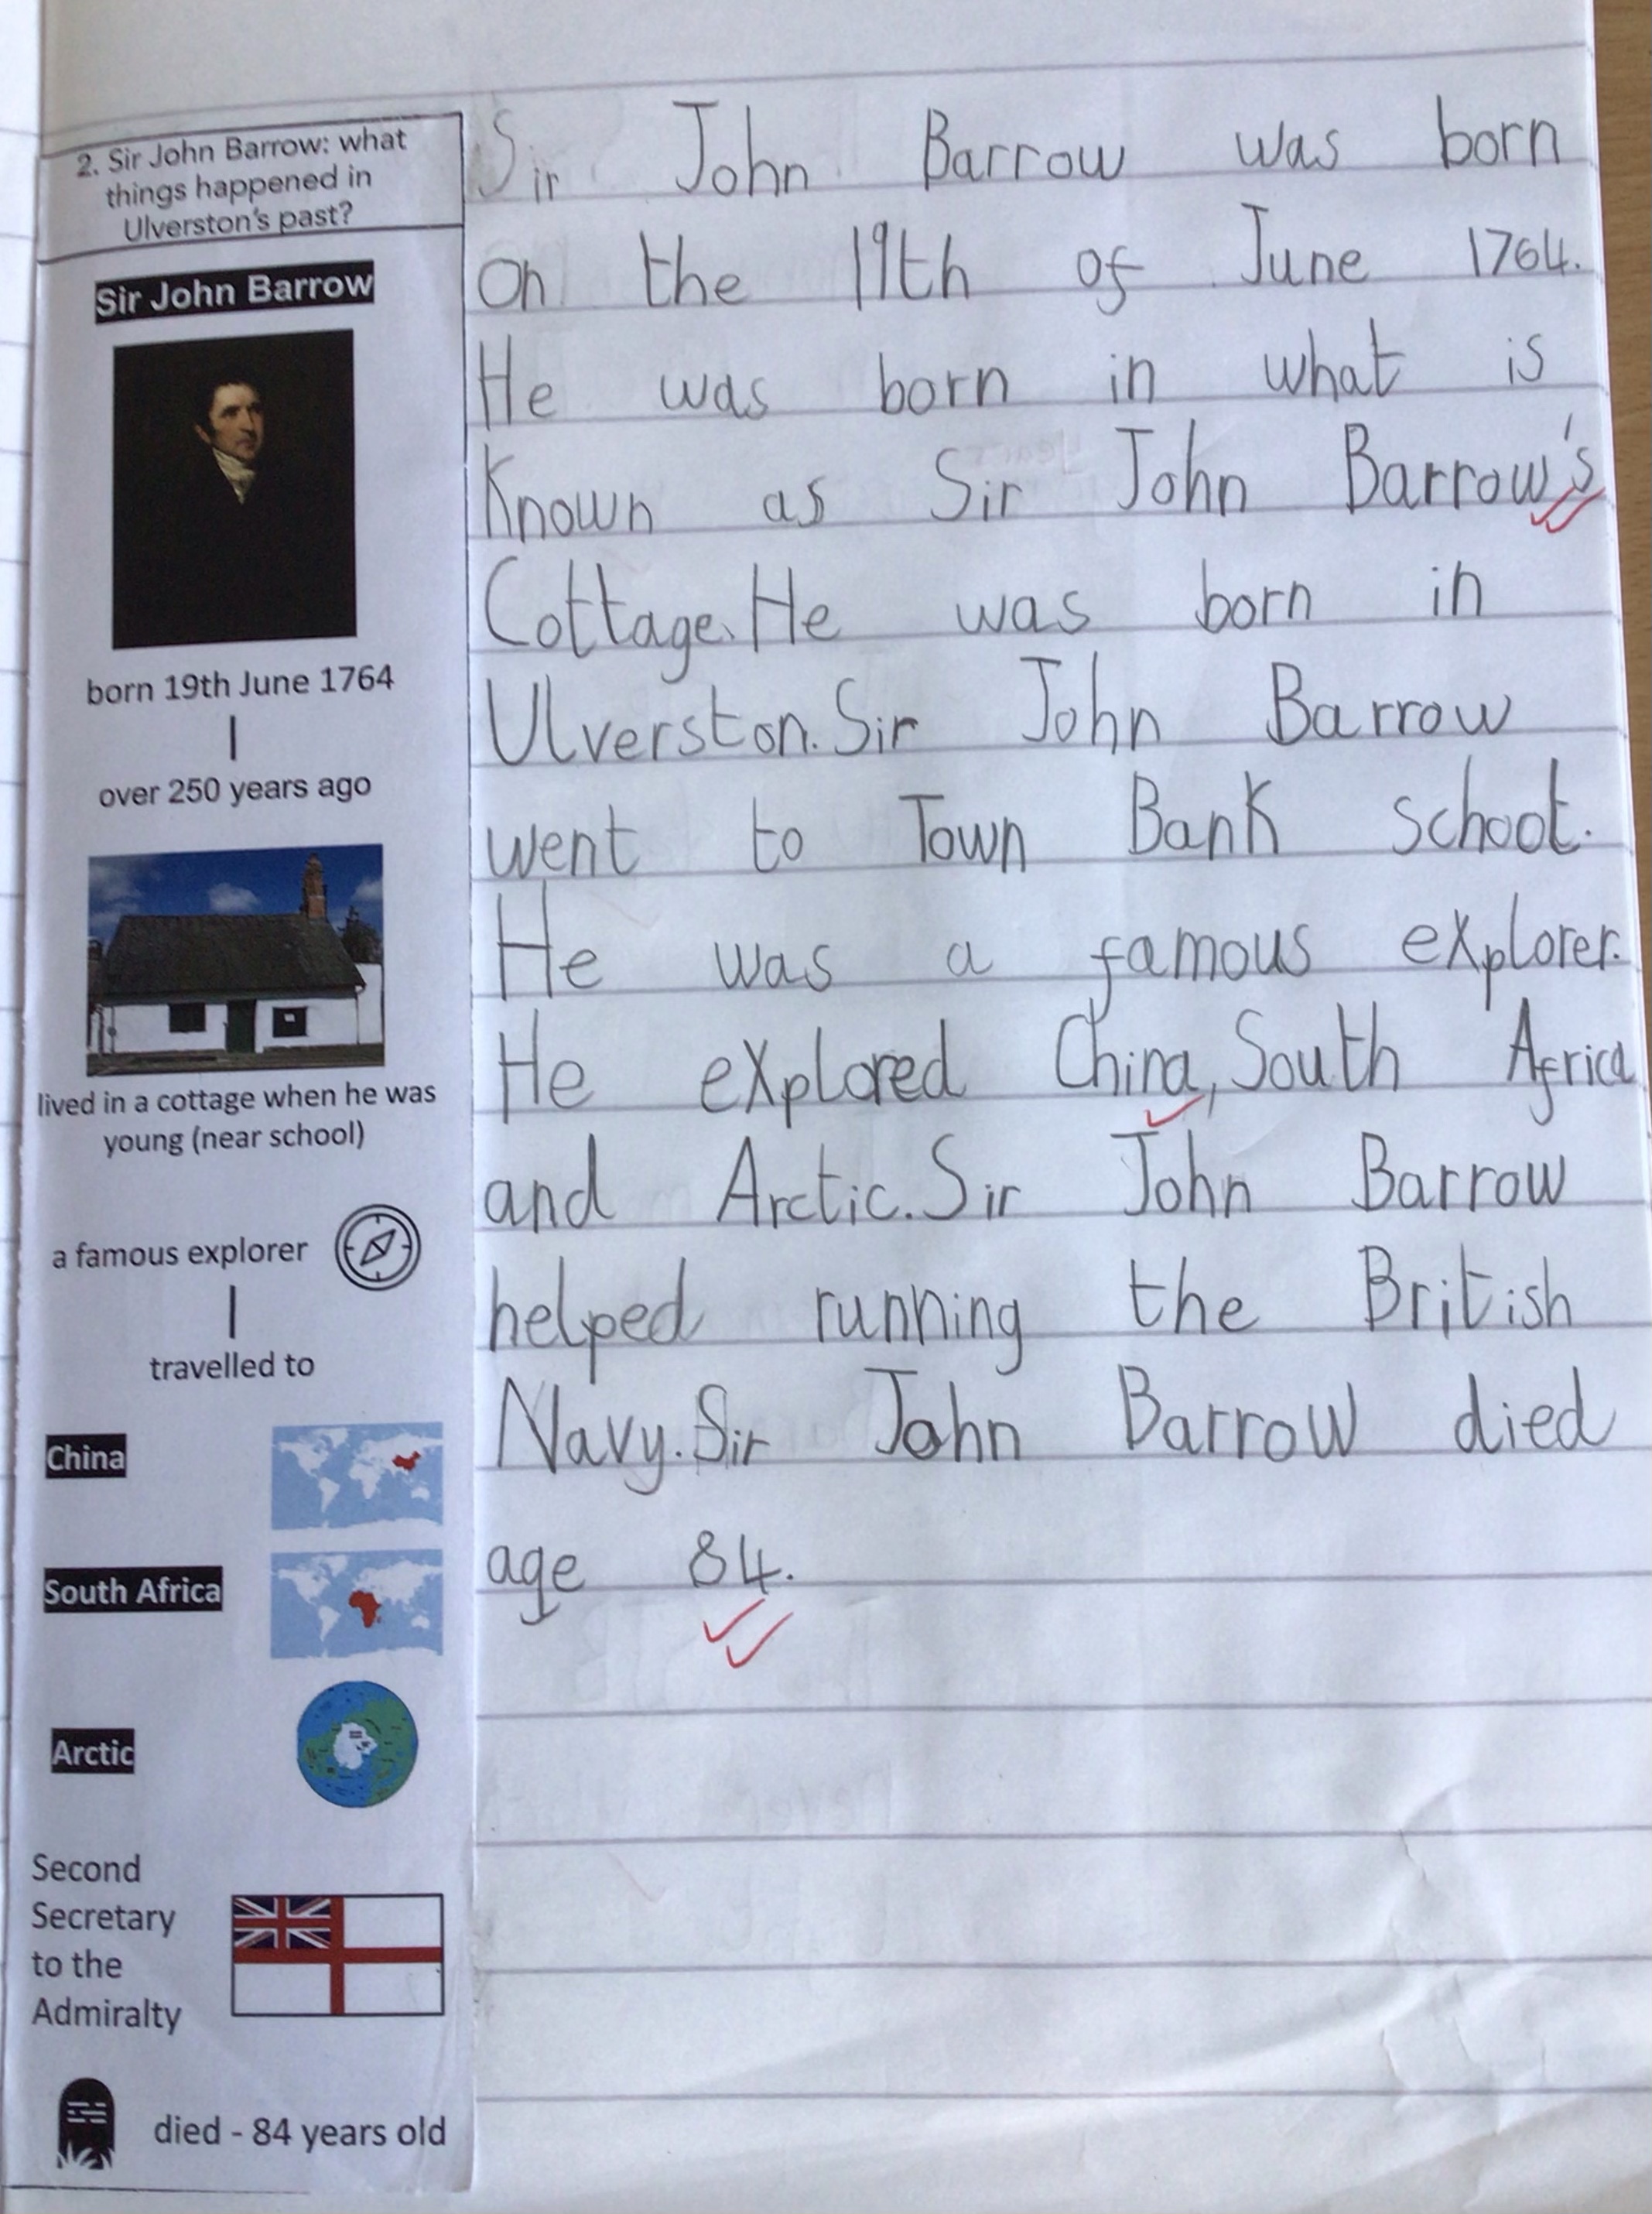 2. Sir John Barrow: what
things happened in
Ulverston's past?
Sir John Barrow
born 19th June 1764
over 250 years ago
lived in a cottage when he was
young (near school)
a famous explorer
travelled to
China
South Africa
Arctic
Second
Secretary
to the
Admiralty
died - 84 years old
Sir John Barrow was born
on the 19th of June 1764.
He was born in what is
Known as Sir John Barrow's
Cottage. He was born in
Ulverston. Sir John Barrow
went to Town Bank school.
He was a famous explorer.
He explored China, South Africa
and Arctic. Sir John Barrow
helped running the British
Navy. Sir John Barrow died
age 84.